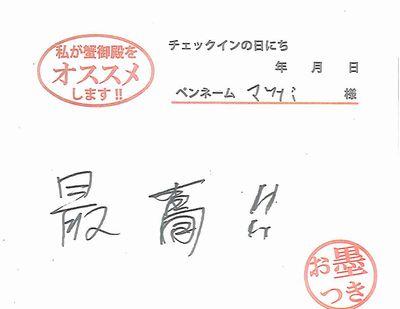 私が蟹御殿を
オススメ
します!!
チェックインの日にち
年 月 日
ペンネーム 様
最高!!
お墨
つき